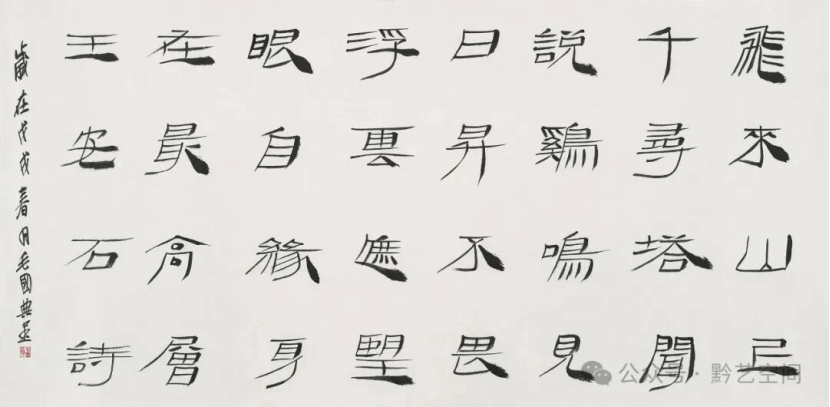 飛來山上
千尋塔聞
説鷄鳴見
日昇不畏
浮雲遮望
眼自緣身
在最高層
王安石詩
歲在戊戌春月毛國典書
公众号·黔艺空间